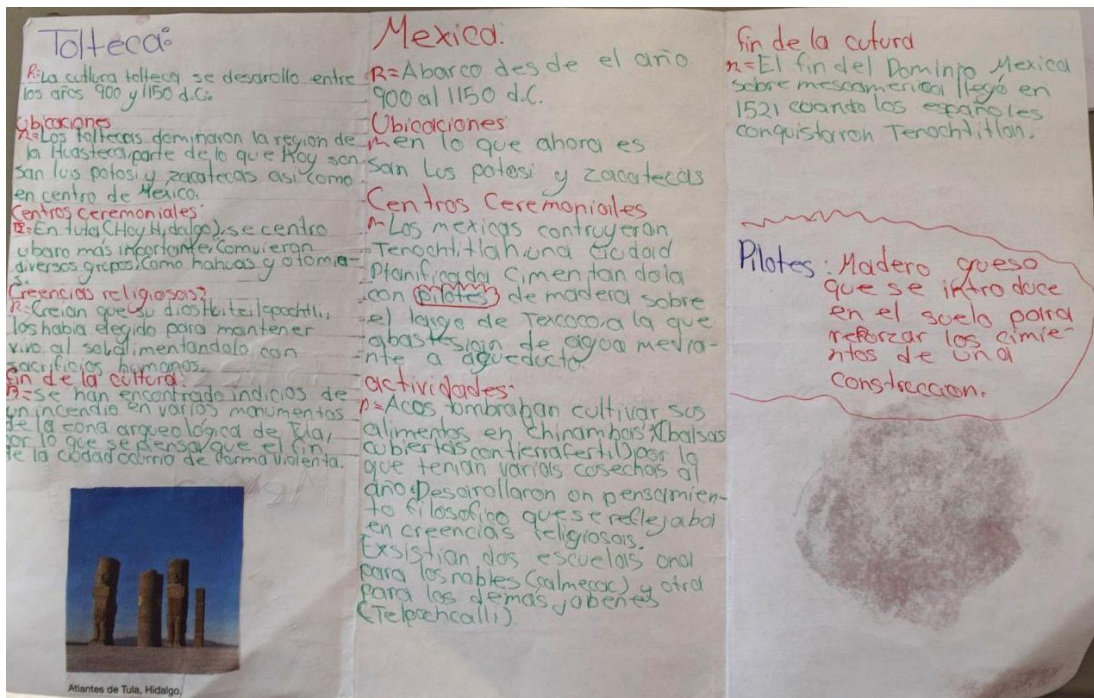 Tolteca:
R=La cultura tolteca se desarollo entre
los años 900 y 1150 d.C.
Ubicaciones
R=Los toltecas dominaron la region de
la Huasteca, parte de lo que Hoy son
san luis potosi y zacatecas asi como
en centro de Mexico.
Centros ceremoniales:
R=En tula (Hoy Hidalgo), se centro
ubaro más importante. Convieron
diversos grupos como nahuas y otomie-
s.
Creencias religiosas?
R=Creian que su dios Huitzilopochtli,
los habia elegido para mantener
vivo al sol alimentandolo con
sacrificios humanos.
fin de la cultura:
R=se han encontrado indicios de
un incendio en varios monumentos
de la zona arqueológica de Tula,
por lo que se pensa que el fin
de la ciudad ocurrio de forma violenta.
Atlantes de Tula, Hidalgo.
Mexica:
R=Abarco desde el año
900 al 1150 d.C.
Ubicaciones
r=en lo que ahora es
San Lus potosi y zacatecas
Centros Ceremoniales
r=Los mexicas contruyeron
Tenochtitlah, una ciudad
Planificada cimentandola
con pilotes de madera sobre
el largo de Texcoco, a la que
abastesian de agua media-
nte a agueducto.
actividades:
R=Acostombraban cultivar sus
alimentos en chinambas (balsas
cubiertas con tierra fertil) por lo
que tenian varias cosechas al
año. Desarrollaron on pensamien-
to filosofico que se reflejaba
en creencias religiosas.
Exsistian dos escuelas una
para los nobles (calmecac) y otra
para los demas jobenes
(Telpochcalli).
fin de la cutura
R=El fin del Dominio Mexica
sobre mesoamerica llegó en
1521 cuando los españoles
conquistaron Tenochtitlan.
Pilotes: Madero grueso
que se introduce
en el suelo para
reforzar los cimie-
ntos de una
construccion.